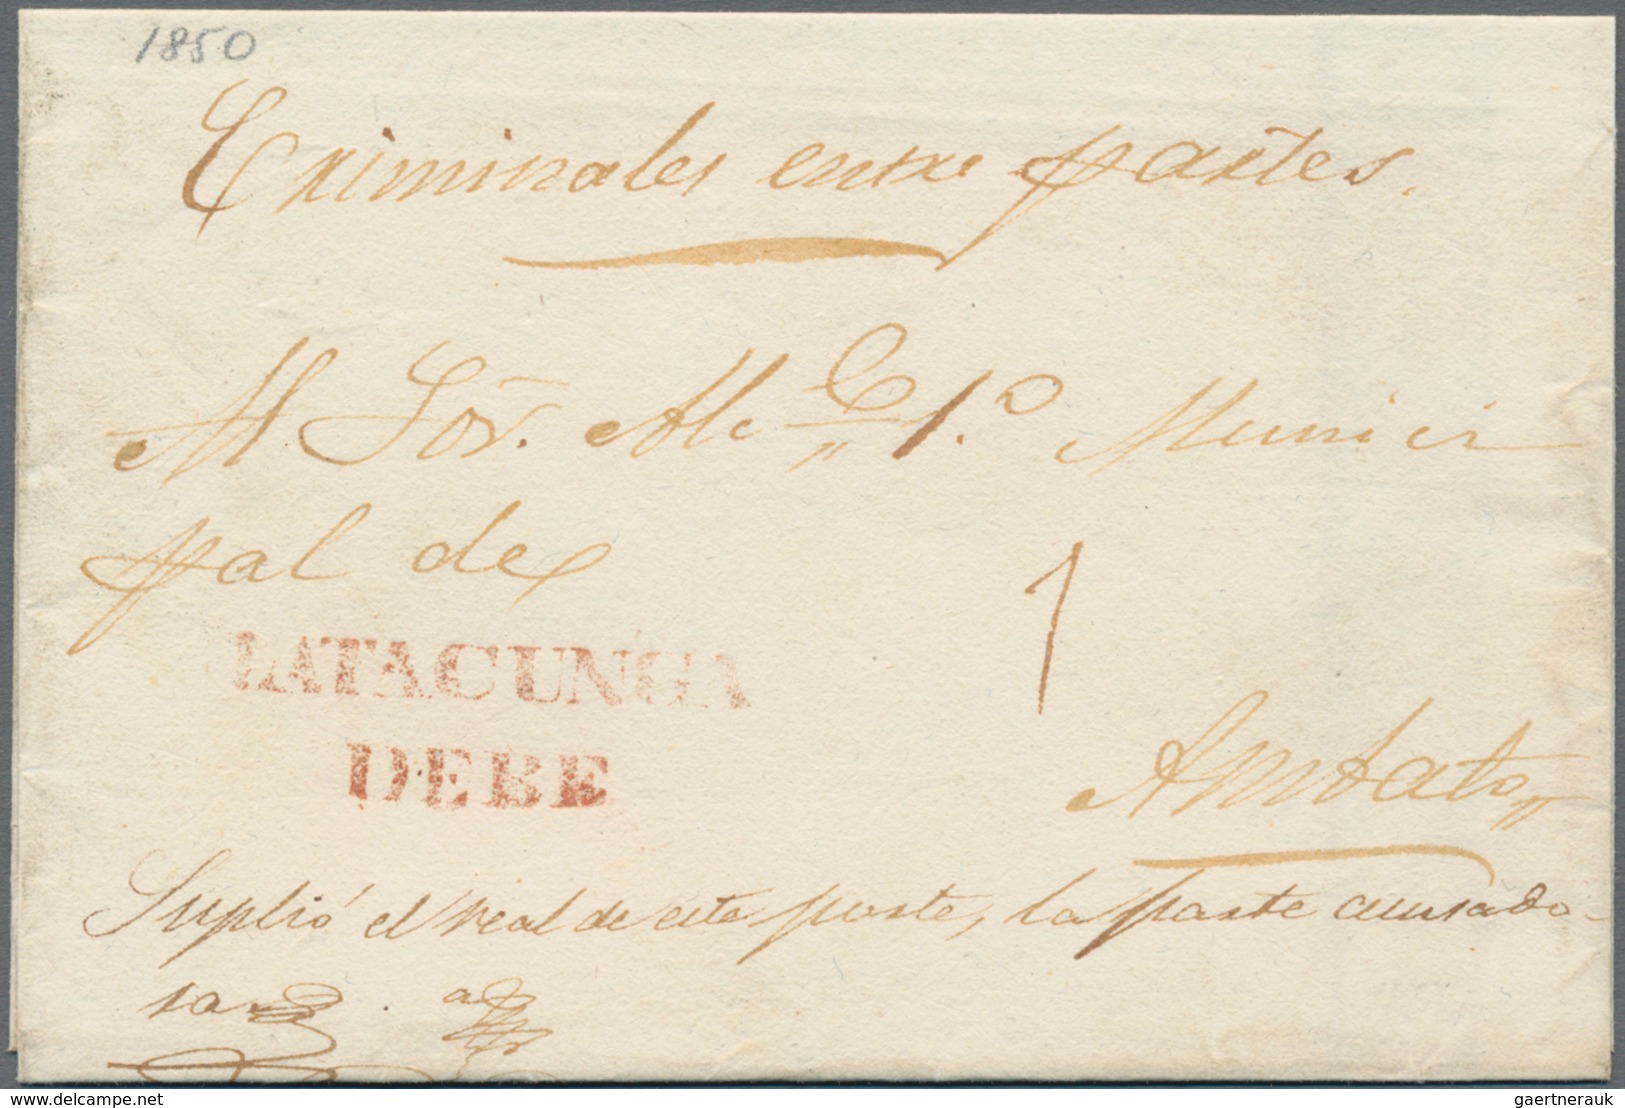 1850
Criminales entre partes.
Al Sor. Alc e 1.o Munici
pal de
1
LATACUNGA
DEBE
Ambato
Suplió el real de este porte, la parte acusado-
ra
delcampe.net
gaertnerauk